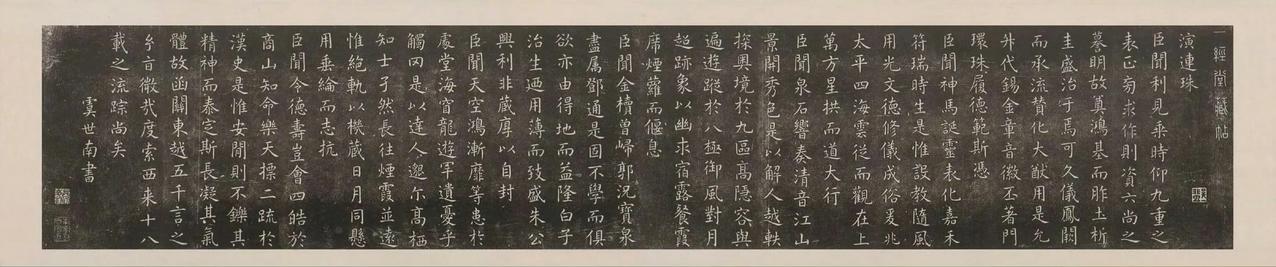 一經堂藏帖
演連珠
臣聞利見乘時仰九重之
表正旁求作則資六尚之
摹明故真鴻基而胙土析
圭盛治于焉可久儀鳳闕
而承流贊化大猷用是允
升代錫金章音徽丕著門
環珠履德範斯憑
臣聞神馬誕靈表化嘉禾
符瑞時生是惟設教隨風
用光文德修儀成俗爰兆
太平四海雲從而觀在上
萬方星拱而道大行
臣聞泉石響奏清音江山
景開秀色是以解人越軼
探奧境於九區高隱容與
遍遊蹤於八極御風對月
超跡象以幽求宿露餐霞
席煙蘿而偃息
臣聞金櫝曾歸郭況寶泉
盡屬鄧通是固不學而俱
欲亦由得地而益隆白子
治生迺用薄而致盛朱公
興利非藏厚以自封
臣聞天空鴻漸靡等患於
處堂海甯龍遊罕遺憂乎
觸网是以達人邈尒高栖
知士孑然長往煙霞並遠
惟絕軌以機藏日月同懸
用垂綸而志抗
臣聞令德壽豈會四皓於
商山知命樂天操二疏於
漢史是惟安閒則不鑠其
精神而泰定斯長凝其氣
體故函關東越五千言之
名言微哉度索西来十八
載之流踪尚矣
虞世南書